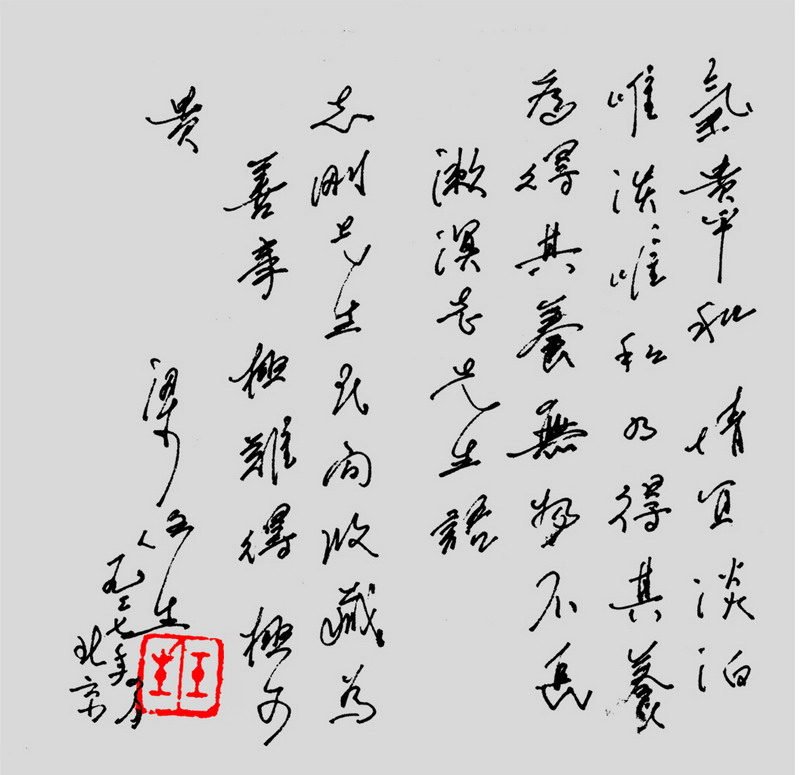 氣貴平和 情宜淡泊
唯淡唯和乃得其養
苟得其養無物不長
漱溟老先生語
志刚先生民间收藏為
善事 極難得 極可
貴
梁 生
九七年 月
北京